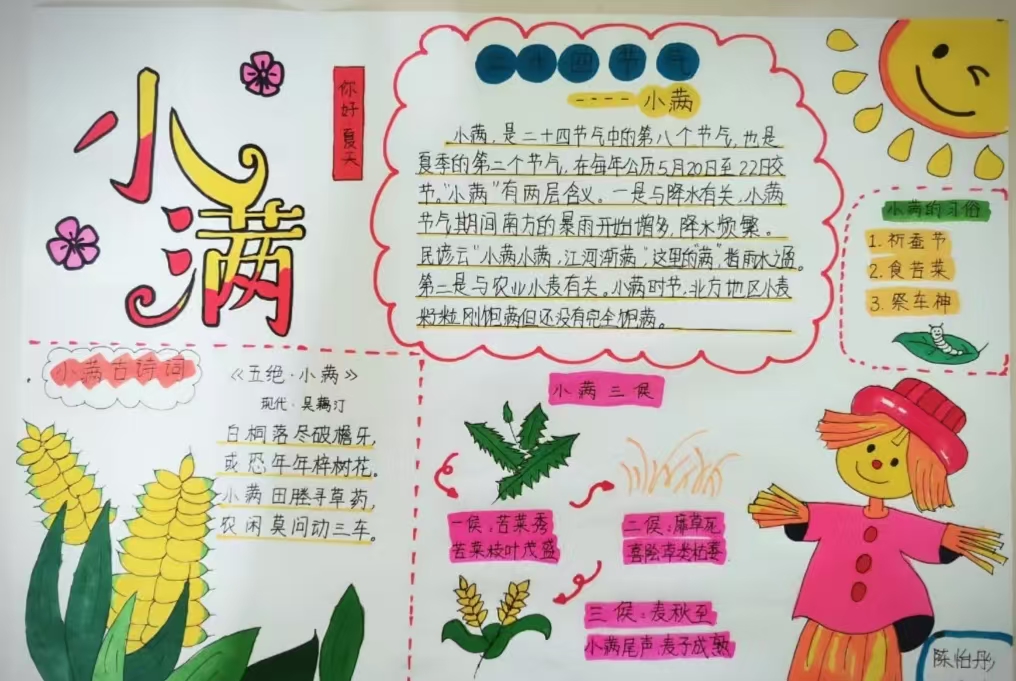 小满
你好夏天
二十四节气
----小满
小满，是二十四节气中的第八个节气，也是
夏季的第二个节气，在每年公历5月20日至22日交
节。“小满”有两层含义。一是与降水有关，小满
节气期间南方的暴雨开始增多，降水频繁。
民谚云“小满小满，江河渐满”，这里的“满”，指雨水之盈。
第二是与农业小麦有关。小满时节，北方地区小麦
籽粒刚饱满但还没有完全饱满。
小满的习俗
1.祈蚕节
2.食苦菜
3.祭车神
小满古诗词
《五绝·小满》
现代·吴藕汀
白桐落尽破檐牙，
或恐年年梓树花。
小满田塍寻草药，
农闲莫问动三车。
小满三候
一候：苦菜秀
苦菜枝叶茂盛
二候：靡草死
喜阴草类枯萎
三候：麦秋至
小满尾声，麦子成熟
陈怡彤